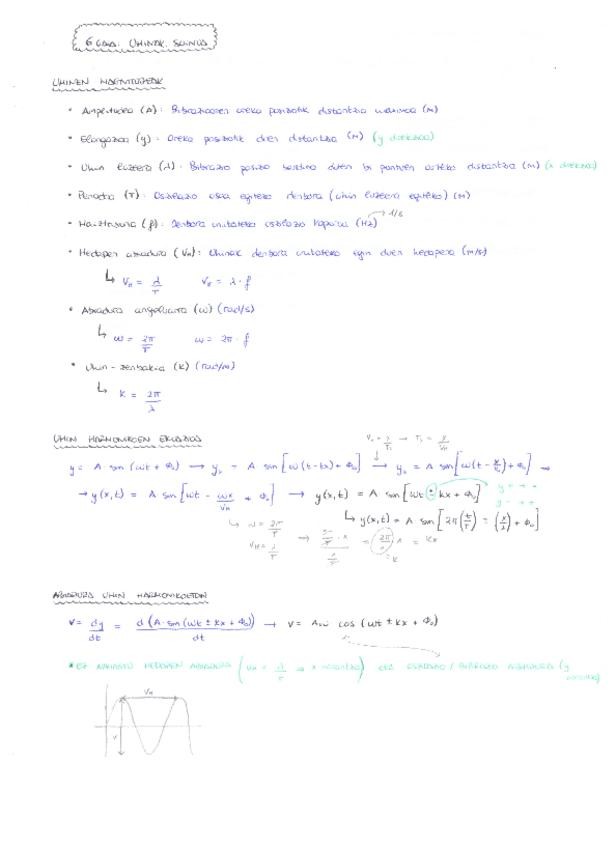 6 GAIA: UHINAK. SOINUA
UHINEN MAGNITUDEAK
• Amplitudea (A): Bibrazioaren oreka posiziotik distantzia maximoa (m)
• Elongazioa (y): Oreka posiziotik duen distantzia (m) (y direkzioa)
• Uhin luzera (λ): Bibrazio posizio berdina duten bi punturen arteko distantzia (m) (x direkzioa)
• Periodoa (T): Oszilazio osoa egiteko denbora (uhin luzeera egiteko) (m)
• Maiztasuna (f): Denbora unitateko oszilazio kopurua (Hz) → 1/s
• Hedapen abiadura (VH): Uhinak denbora unitateko egin duen hedapena (m/s)
↳ VH = λ/T VH = λ · f
• Abiadura angeluarra (ω) (rad/s)
↳ ω = 2π/T ω = 2π · f
• Uhin-zenbakia (k) (rad/m)
↳ k = 2π/λ
UHIN HARMONIKOEN EKUAZIOA
y = A sin (ωt + Φ0) → yx = A sin [ω(t - tx) + Φ0] → yx = A sin [ω(t - x/VH) + Φ0] →
→ y(x,t) = A sin [ωt - ωx/VH + Φ0] → y(x,t) = A sin [ωt ± kx + Φ0]
↳ y(x,t) = A sin [2π(t/T) ± (x/λ) + Φ0]
↳ ω = 2π/T
VH = λ/T
= kx
ABIADURA UHIN HARMONIKOETAN
v = dy/dt = d (A · sin (ωt ± kx + Φ0))/dt → v = Aω cos (ωt ± kx + Φ0)
* EZ NAHASTU HEDAPEN ABIADURA (VH = λ/T → x norantza) ETA OSZILAZIO / BIBRAZIO ABIADURA (y norantza)
VH
v